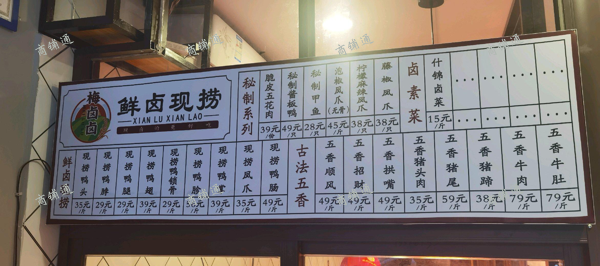 梅卤卤
鲜卤现捞
XIAN LU XIAN LAO
秘制系列
脆皮五花肉 39元/份
秘制酱板鸭 49元/只
秘制甲鱼 28元/只
凤爪(无骨) 45元/斤
柠檬麻辣凤爪 38元/斤
藤椒凤爪 38元/斤
卤素菜
什锦卤菜 15元/斤
鲜卤现捞
现捞鸭头 35元/斤
现捞鸭脖 29元/斤
现捞鸭腿 29元/斤
现捞鸭翅 39元/斤
现捞鸭锁骨 29元/斤
现捞鸭
现捞鸭 39元/斤
现捞凤爪 49元/斤
现捞鸭肠 49元/斤
古法五香
五香顺风 49元/斤
五香招财 49元/斤
五香拱嘴 49元/斤
五香猪头肉 35元/斤
五香猪尾 59元/斤
五香猪蹄 38元/斤
五香牛肉 79元/斤
五香牛肚 79元/斤
商铺通